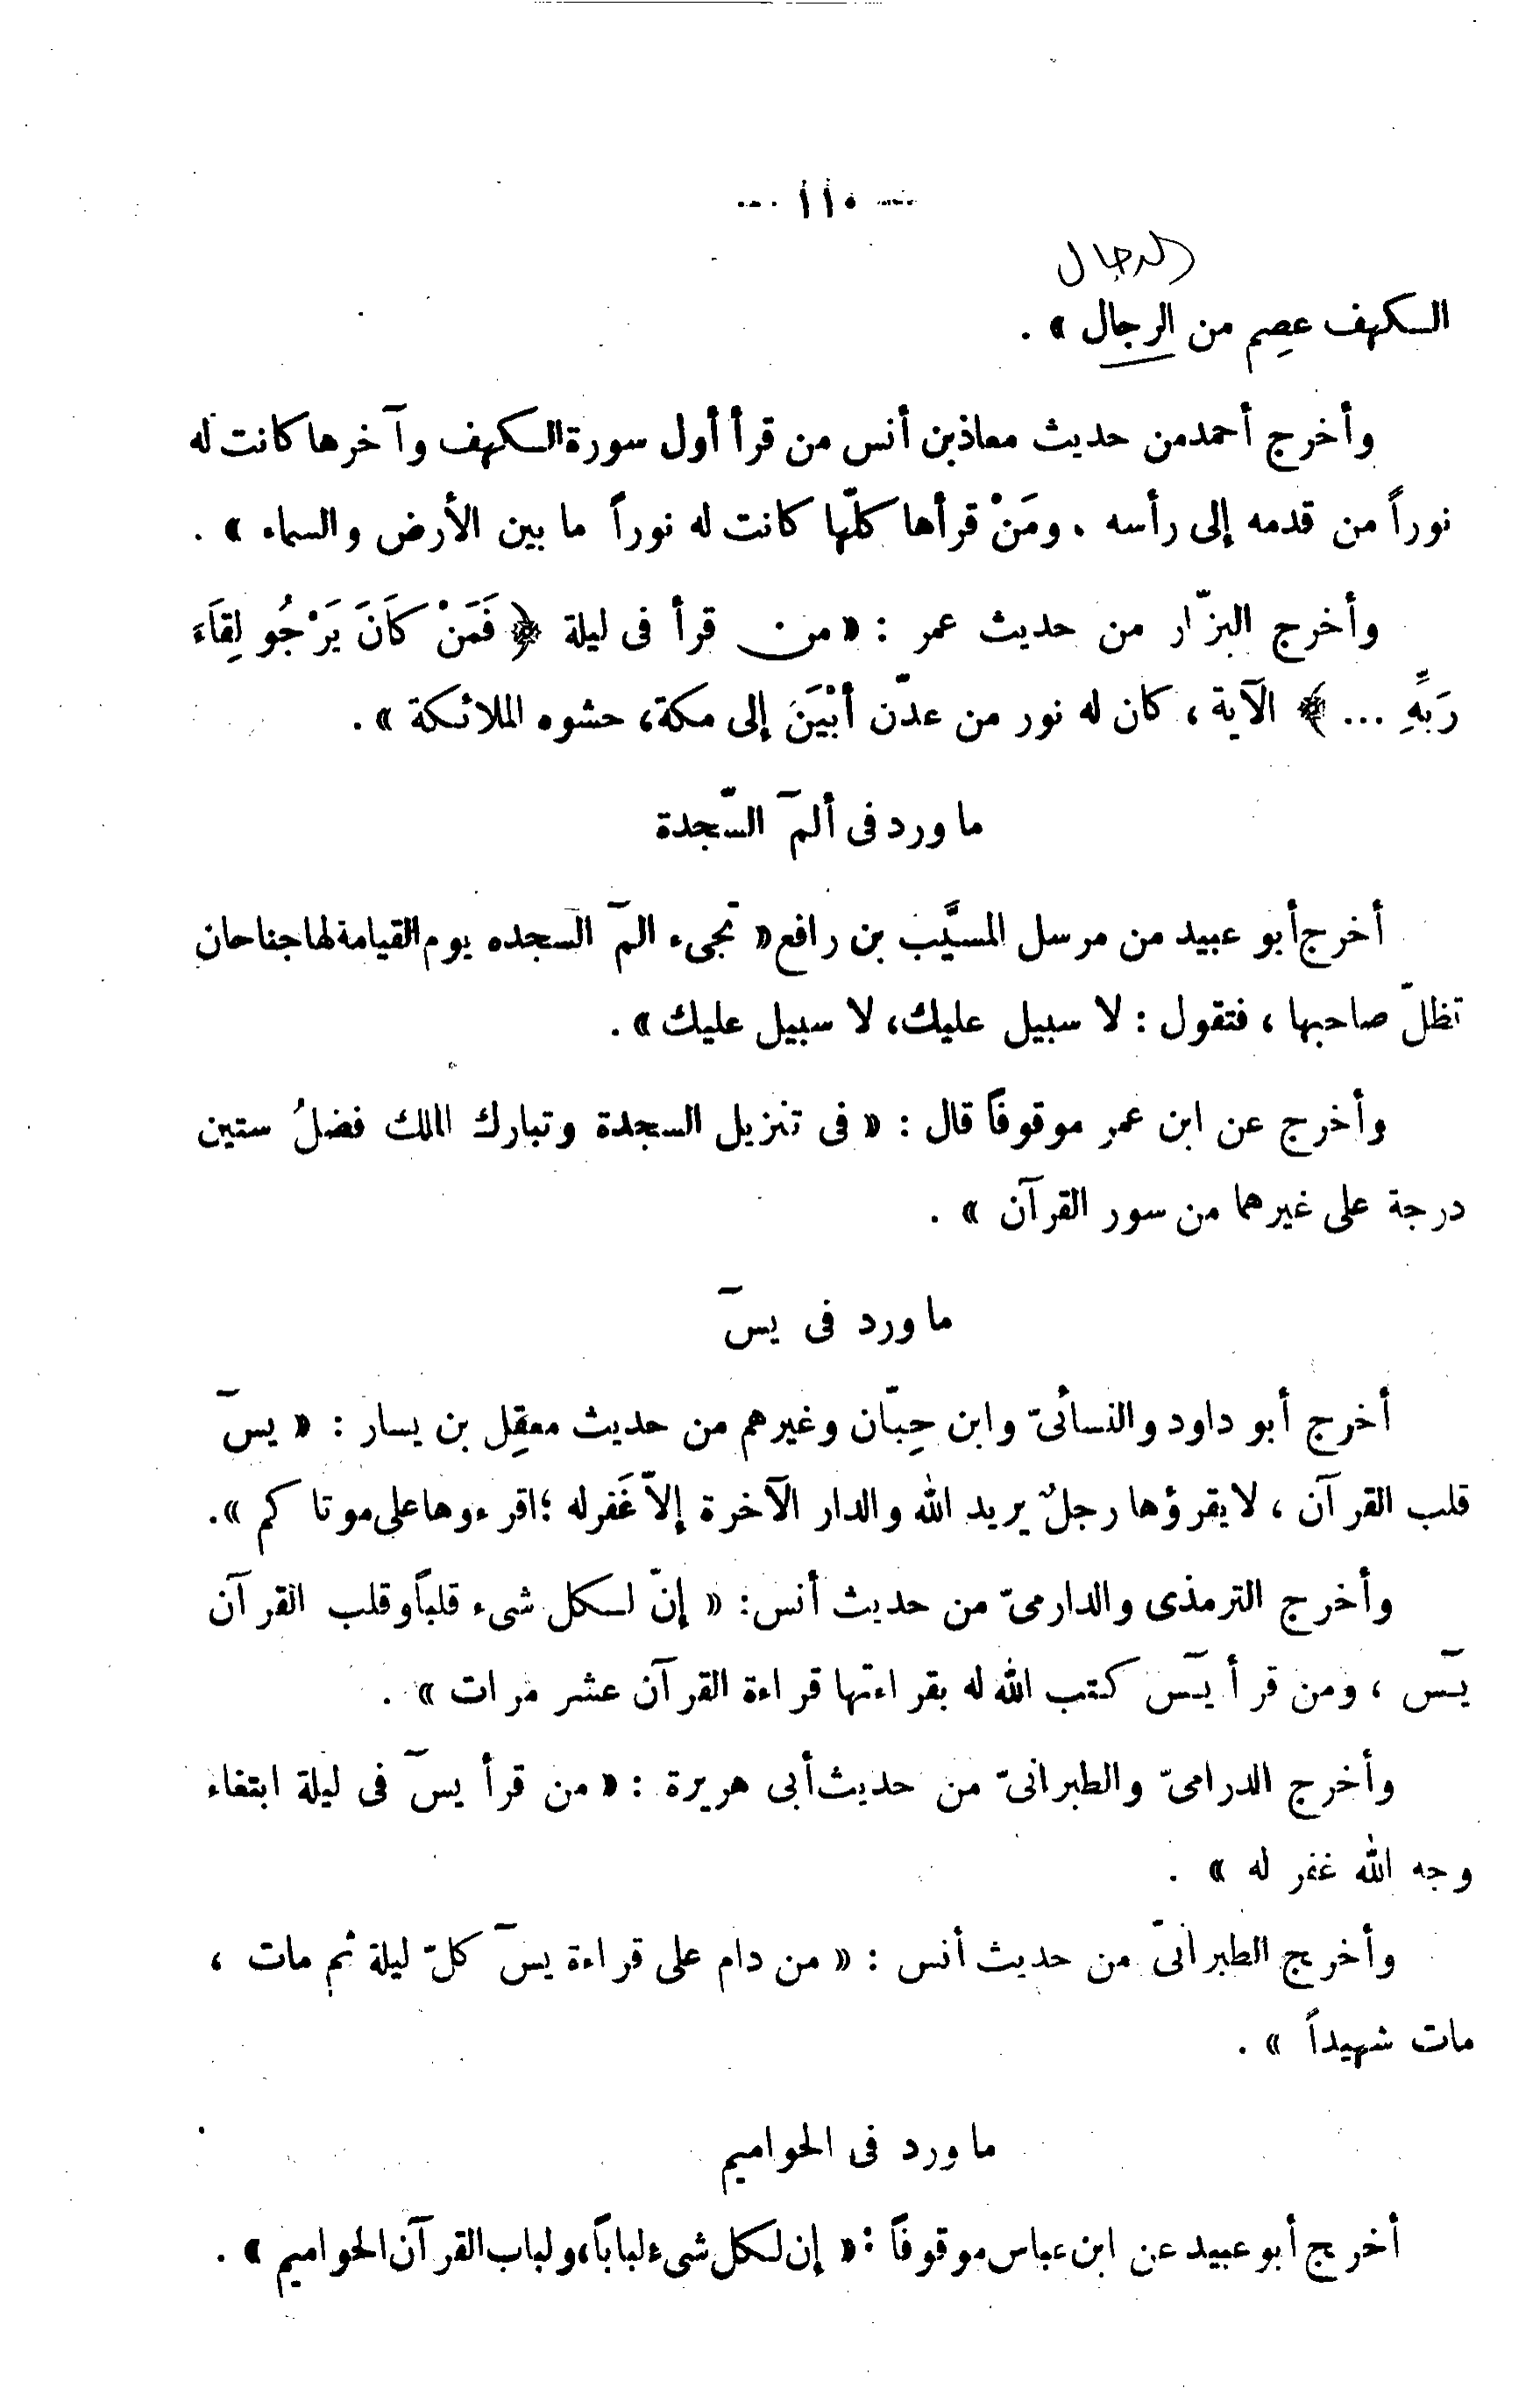 — ١١٠ —
الدجال
الكهف عصِم من الرجال » .
وأخرج أحمد من حديث معاذ بن أنس من قرأ أول سورة الكهف وآخرها كانت له
نوراً من قدمه إلى رأسه . ومَنْ قرأها كلّها كانت له نوراً ما بين الأرض والسماء » .
وأخرج البزّار من حديث عمر : « من قرأ فى ليلة ﴿ فَمَنْ كَانَ يَرْجُو لِقَاءَ
رَبِّهِ ... ﴾ الآية ، كان له نور من عدّن أبْيَنَ إلى مكة، حشوه الملائكة » .
ما ورد فى ألمَ السّجدة
أخرج أبو عبيد من مرسل المسيَّب بن رافع « تجىء المَ السجده يوم القيامة لها جناحان
تظلّ صاحبها ، فتقول : لا سبيل عليك، لا سبيل عليك » .
وأخرج عن ابن عمر موقوفاً قال : « فى تنزيل السجدة وتبارك الملك فضلُ ستين
درجة على غيرهما من سور القرآن » .
ما ورد فى يسَ
أخرج أبو داود والنسائىّ وابن حِبّان وغيرهم من حديث معقِل بن يسار : « يسَ
قلب القرآن ، لا يقرؤها رجلٌ يريد الله والدار الآخرة إلاّ غَفر له ؛ اقرءوها على موتاكم » .
وأخرج الترمذى والدارمىّ من حديث أنس: « إنّ لكل شىء قلباً وقلب القرآن
يسَ ، ومن قرأ يسَ كتب الله له بقراءتها قراءة القرآن عشر مرات » .
وأخرج الدرامىّ والطبرانىّ من حديث أبى هريرة : « من قرأ يسَ فى ليلة ابتغاء
وجه الله غفر له » .
وأخرج الطبرانىّ من حديث أنس : « من دام على قراءة يسَ كلّ ليلة ثم مات ،
مات شهيداً » .
ما ورد فى الحواميم
أخرج أبو عبيد عن ابن عباس موقوفاً : « إن لكل شىء لباباً، ولباب القرآن الحواميم » .